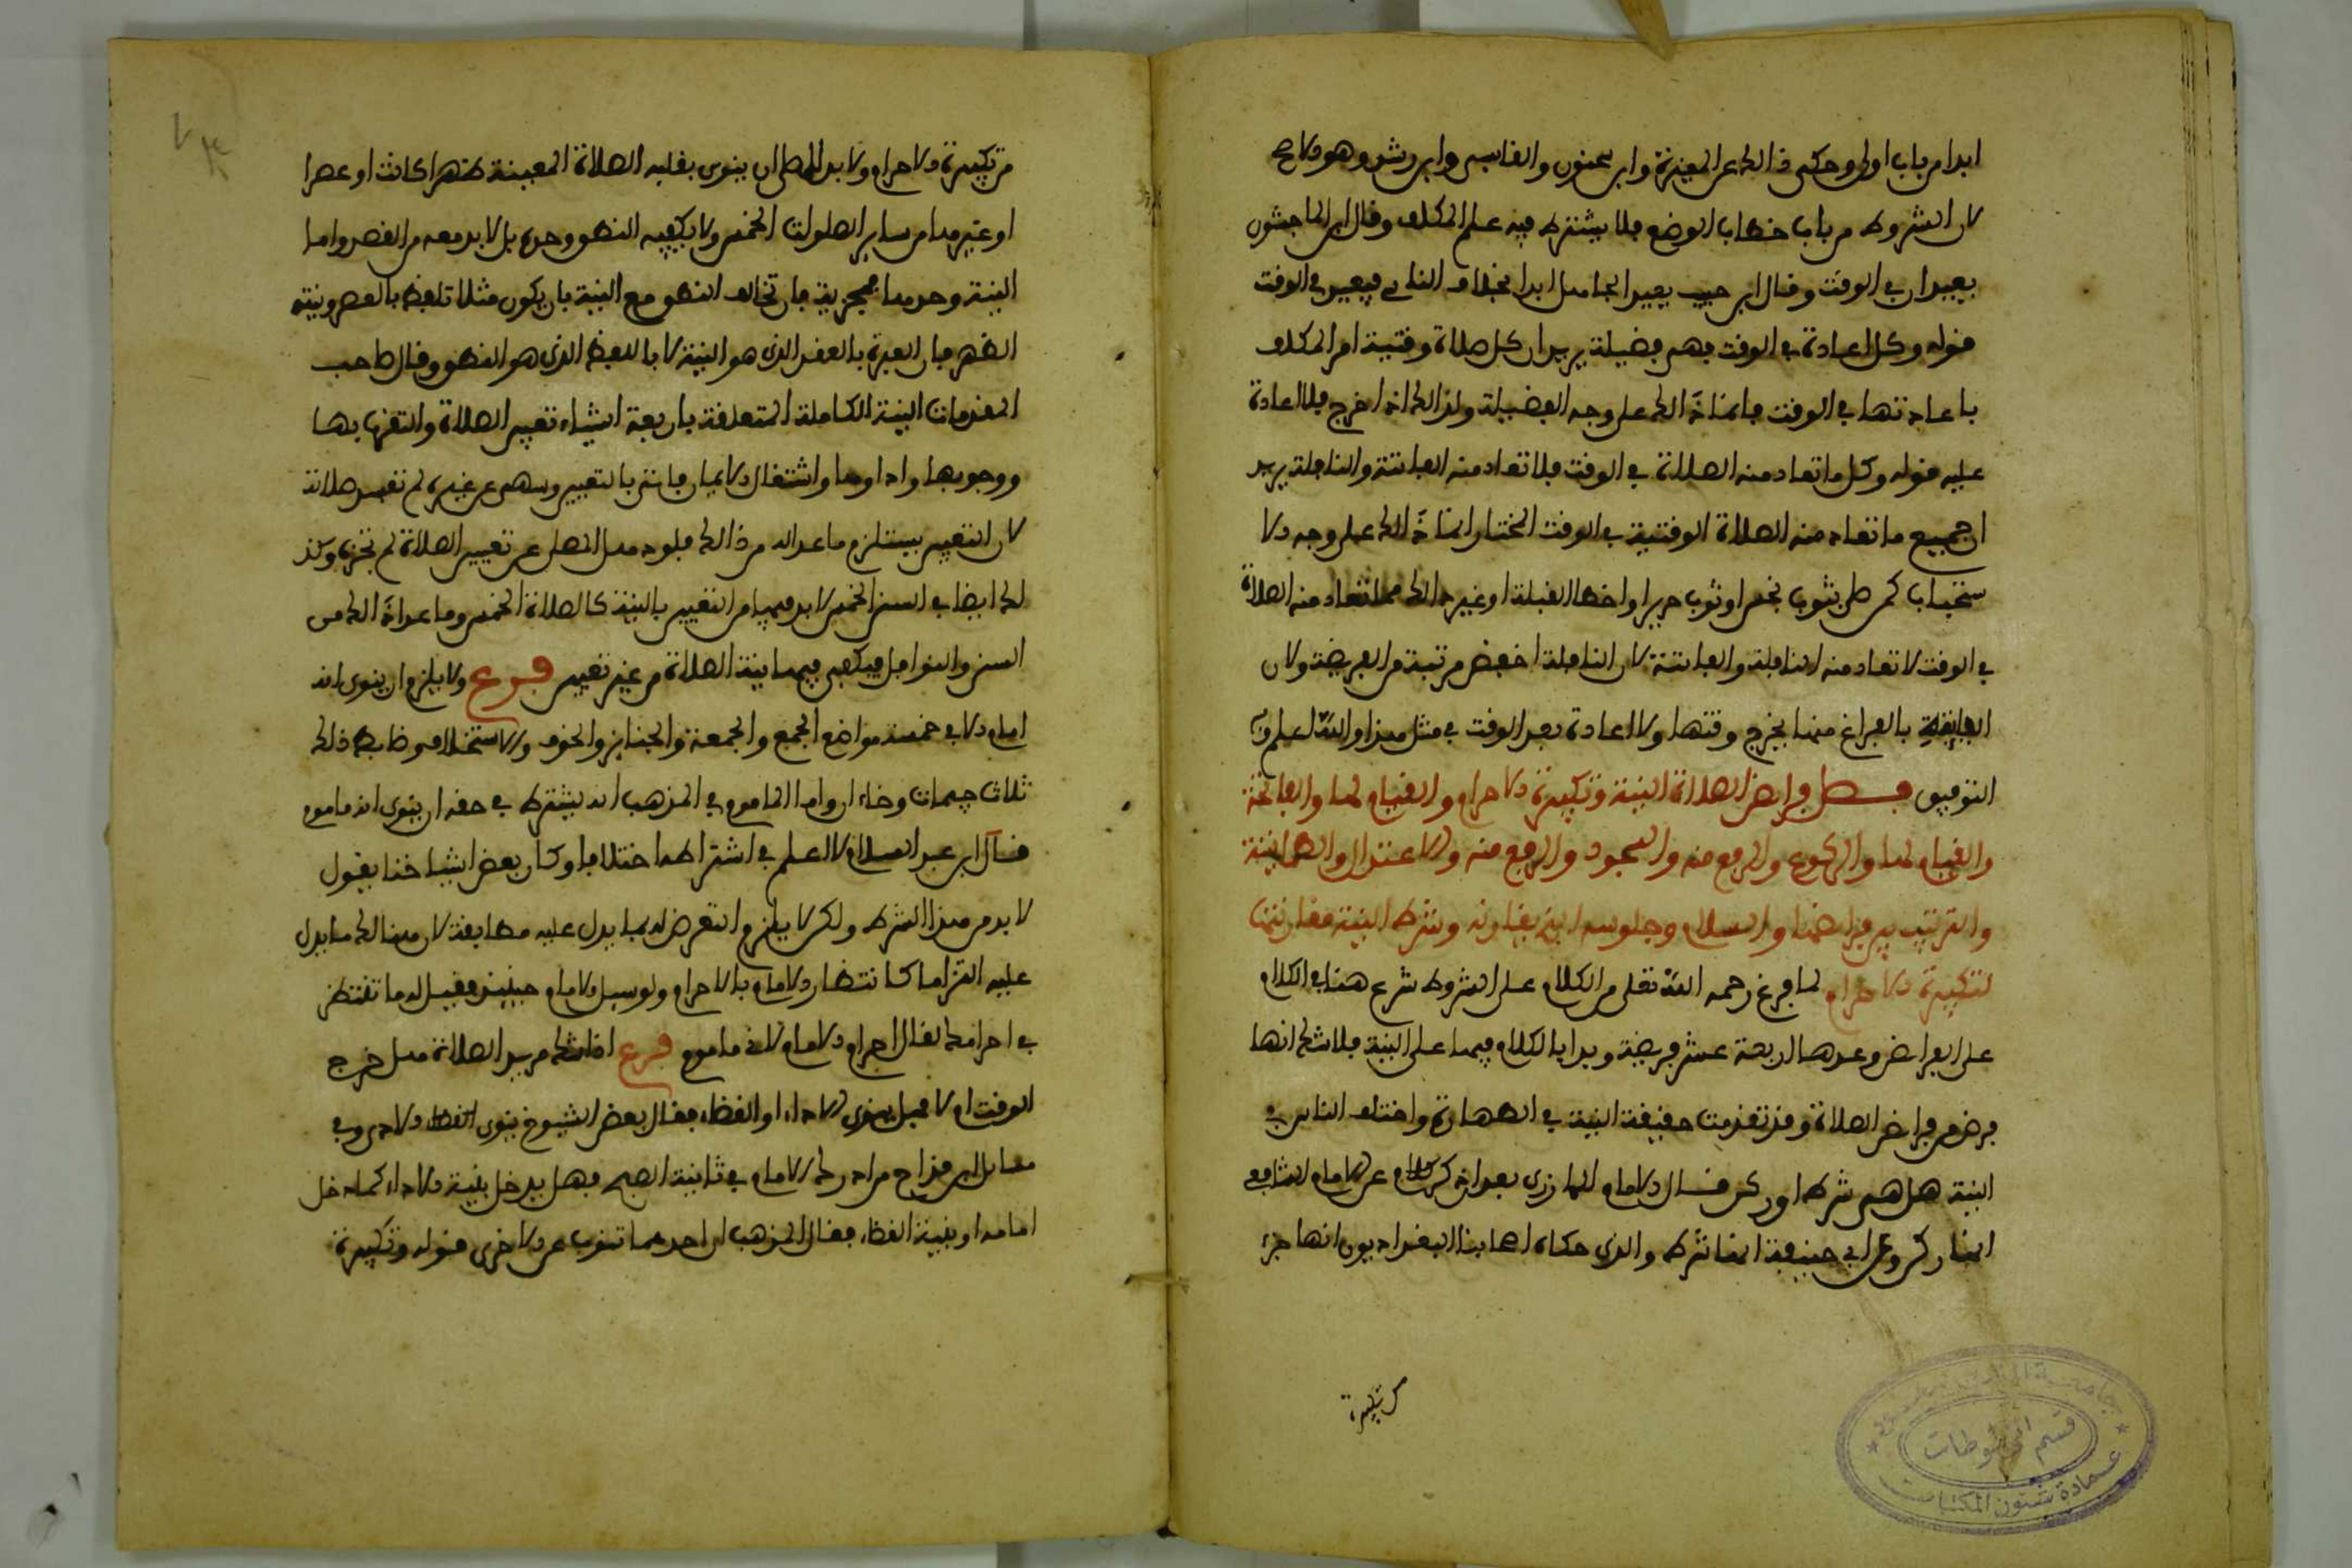 ابدا من باب اولى وحكى ذالك عن المغيرة وابن سحنون والقابسي وابن رشد وهو الاصح
لان الشروط من باب خطاب الوضع فلا يشترط فيه علم المكلف وقال ابن الماجشون
يعيدان في الوقت وقال ابن حبيب يعيد الجاهل ابدا بخلاف الناسي فيعيد في الوقت
قوله وكل اعادة في الوقت فهي فضيلة يريد ان كل صلاة وقتية امر المكلف
باعادتها في الوقت فانما ذالك على وجه الفضيلة ولذالك اذا خرج فلا اعادة
عليه قوله وكل ما تعاد منه الصلاة في الوقت فلا تعاد منه الفائتة والنافلة يريد
ان جميع ما تعاد منه الصلاة الوقتية في الوقت المختار انما ذالك على وجه الا
ستحباب كمن صلى بثوب نجس او ثوب حرير او اخطا القبلة او غير ذالك مما تعاد منه الصلاة
في الوقت لا تعاد منه النافلة والفائتة لان النافلة اخفض مرتبة من الفريضة ولان
الفائتة بالفراغ منها يخرج وقتها ولا اعادة بعد الوقت في مثل هذا والله اعلم وبه
التوفيق فصل فرائض الصلاة النية وتكبيرة الاحرام والقيام لها والفاتحة
والقيام لها والركوع والرفع منه والسجود والرفع منه والاعتدال والطمانينة
والترتيب بين فرائضها والسلام وجلوسه الذي يقارنه وشرط النية مقارنتها
لتكبيرة الاحرام لما فرغ رحمه الله تعلى من الكلام على الشروط شرع هنا في الكلام
على الفرائض وعدها اربعة عشر فريضة وبدا بالكلام فيها على النية فلا شك انها
فرض من فرائض الصلاة وقد تقدمت حقيقة النية في الطهارة واختلف الناس في
النية هل هي شرط او ركن قال الامام المازري بعد ان ذكر كلام عن الامام الشافعي
انها ركن وعن ابي حنيفة انها شرط والذي حكاه اصحابنا البغداديون انها جزء
من تكبيرة
من تكبيرة الاحرام ولا بد للمصلي ان ينوي بقلبه الصلاة المعينة ظهرا كانت او عصرا
او غيرهما من ساير الصلوات الخمس ولا يكفيه النطق وحده بل لا بد معه من القصد واما
النية وحدها فمجزية فان تخالف النطق مع النية بان يكون مثلا تلفظ بالعصر ونيته
الظهر فان العبرة بالعقد الذي هو النية لا باللفظ الذي هو النطق وقال صاحب
المقدمات النية الكاملة المتعلقة باربعة اشياء تعيين الصلاة والتقرب بها
ووجوبها واداوها واشتغال الايمان فان بالتعيين وسهى عن غيره لم تفسد صلاته
لان التعيين يستلزم ما عداه من ذالك فلو ذهل المصلي عن تعيين الصلاة لم تجزه وكذ
لك ايضا في السنن الخمس لا بد فيها من التعيين بالنية كالصلاة الخمس وما عدا ذالك من
السنن والنوافل فيكفي فيها نية الصلاة من غير تعيين فرع ولا يلزم ان ينوي انه
امام الا في خمسة مواضع الجمع والجمعة والجنايز والخوف والاستخلاف وضابط ذالك
ثلاث جيمات وخاءان واما الماموم في المذهب انه يشترط في حقه ان ينوي انه ماموم
قال ابن عبد السلام لا اعلم في اشتراطها اختلافا وكان بعض اشياخنا يقول
لا بد من هذا الشرط ولكن لا يلزم التعرض له بما يدل عليه مطابقة لان هنالك ما يدل
عليه التزاما كانتظار الامام بالاحرام ولو سيل الامام حينيذ فقيل له ما تنتظر
في احرامك لقال احرام الامام لاني ماموم فرع اذا شك مريد الصلاة هل خرج
الوقت ام لا فهل ينوي الاداء او القضاء فقال بعض الشيوخ ينوي القضاء ولا حرى وفي
مسايل ابن قداح من ادرك الامام في ثانية الصبح فهل يدخل بنية الاداء كما دخل
امامه او بنية القضاء فقال المذهب ان احدهما تنوب عن الاخرى قوله وتكبيرة
جامعة الملك سعود
قسم المخطوطات
عمادة شئون المكتبات